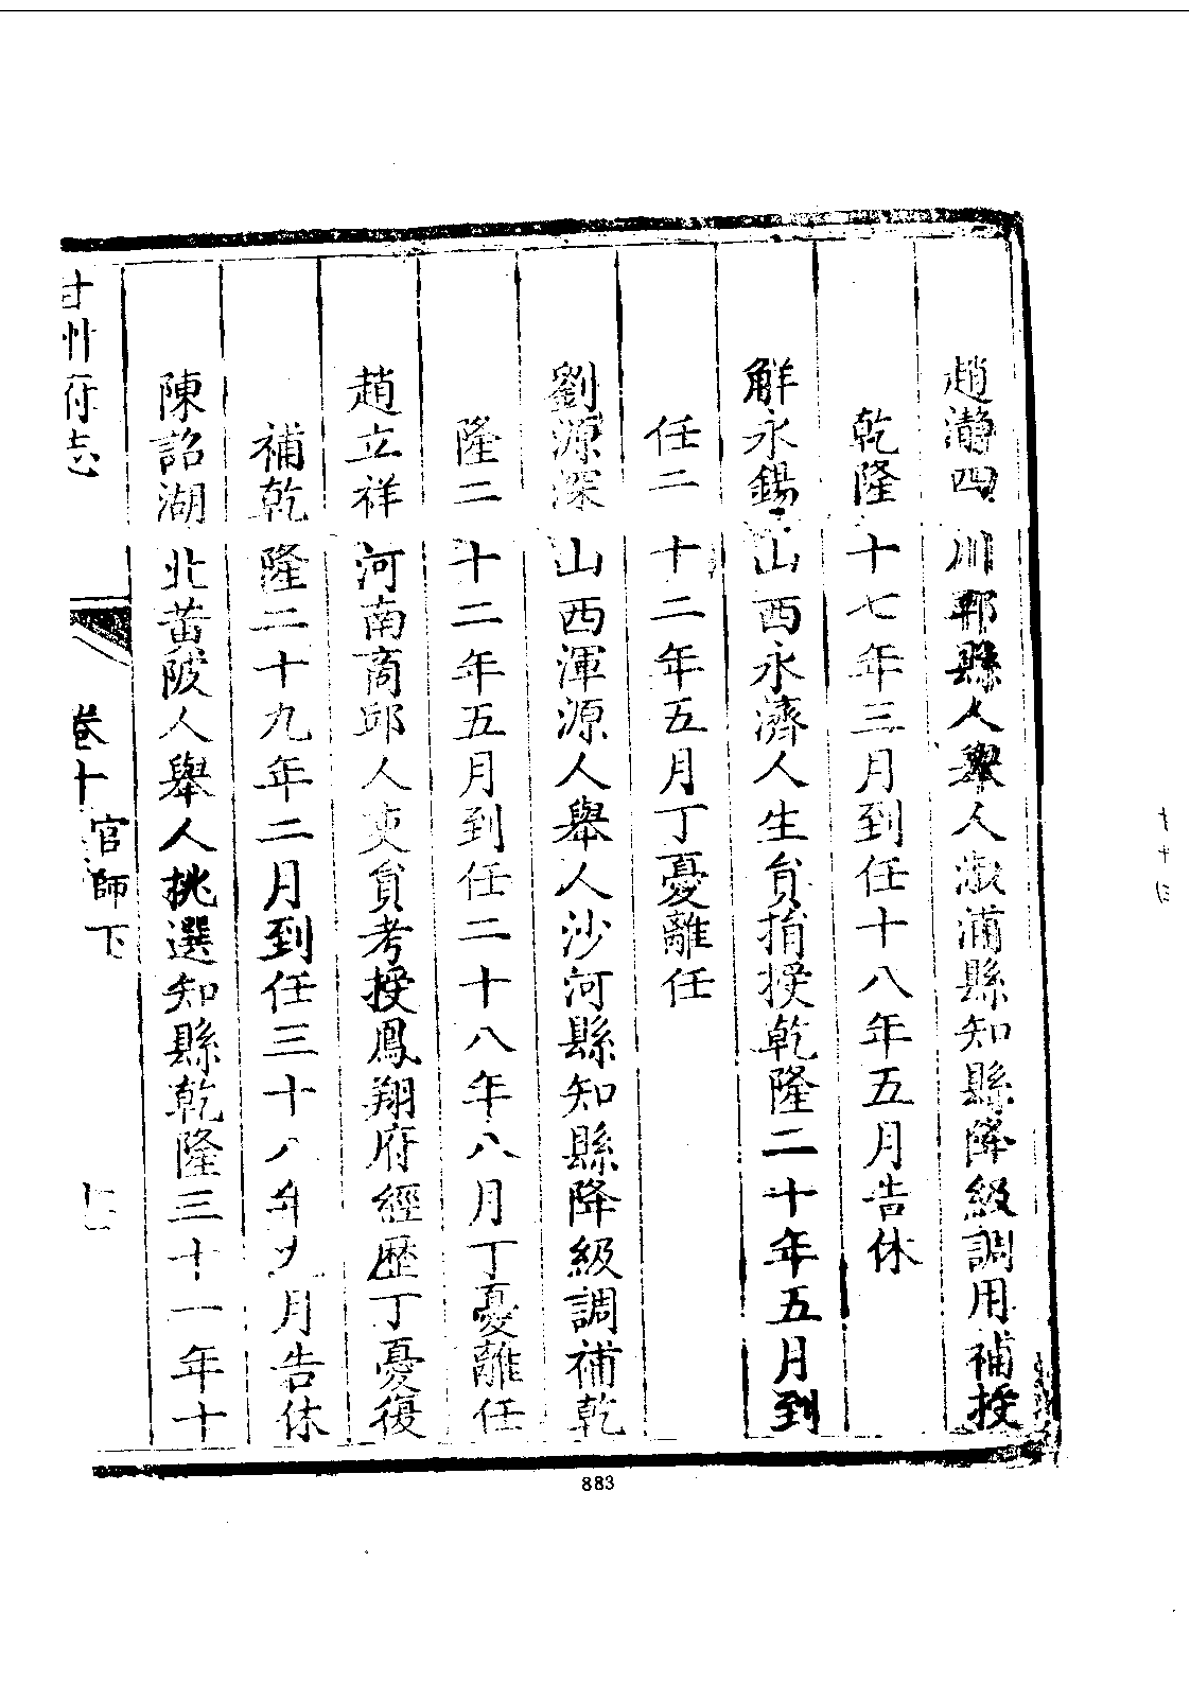 趙瀞四川郫縣人舉人溆浦縣知縣降級調用補授
乾隆十七年三月到任十八年五月告休
解永錫山西永濟人生貟捐授乾隆二十年五月到
任二十二年五月丁憂離任
劉源深山西渾源人舉人沙河縣知縣降級調補乾
隆二十二年五月到任二十八年八月丁憂離任
趙立祥河南商邱人吏貟考授鳳翔府經歷丁憂復
補乾隆二十九年二月到任三十八年九月告休
陳詔湖北黃陂人舉人挑選知縣乾隆三十一年十
甘州府志
卷十
官師下
883